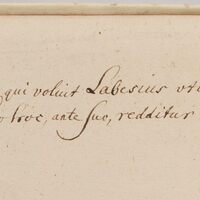 qui voluit Labesius uti
hoc, ante suo, redditur